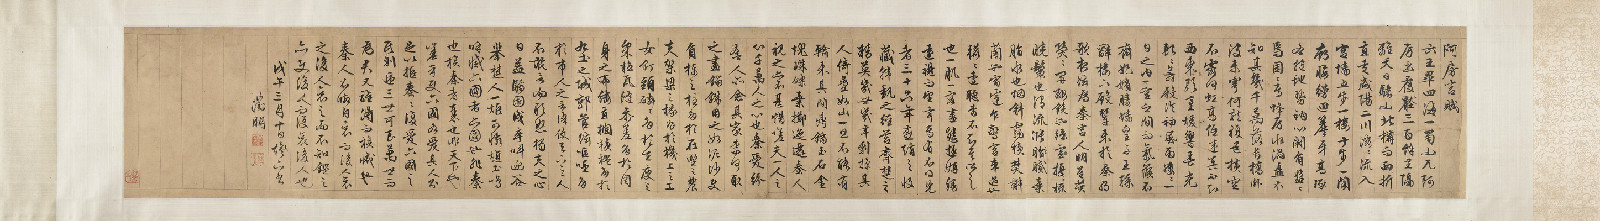 阿房宮賦
六王畢四海一蜀山兀阿
房出覆壓三百餘里隔
離天日驪山北構而西折
直走咸陽二川溶溶流入
宮牆五步一樓十步一閣
廊腰縵迴簷牙高啄
各抱地勢鉤心鬥角盤盤
焉囷囷焉蜂房水渦矗不
知其幾千萬落長橋臥
波未雲何龍複道橫空
不霽何虹高低冥迷不知
西東歌臺暖響春光
融融舞殿冷袖風雨淒淒一
日之內一宮之間而氣候不
齊妃嬪媵嬙皇子王孫
辭樓下殿輦來於秦朝
歌夜絃為秦宮人明星熒
熒開粧鏡也綠雲擾擾梳
曉鬟也渭流漲膩棄
脂水也烟斜霧橫焚椒
蘭也雷霆乍驚宮車過也
轆轆遠聽杳不知其所之
也一肌一容盡態極妍縵
立遠視而望幸焉有不得見
者三十六年燕趙之收
藏韓魏之經營齊楚之
精英幾世幾年剽掠其
人倚疊如山一旦不能有
輸來其間鼎鐺玉石金
塊珠礫棄擲邐迤秦人
視之亦不甚惜嗟夫一人之
心千萬人之心也秦愛紛
奢人亦念其家奈何取
之盡錙銖用之如泥沙使
負棟之柱多於南畝之農
夫架梁之椽多於機上之工
女釘頭磷磷多於在庾之
粟粒瓦縫參差多於周
身之帛縷直欄橫檻多於
九土之城郭管絃嘔啞多
於市人之言語使天下之人
不敢言而敢怒獨夫之心
日益驕固戍卒叫函谷
舉楚人一炬可憐焦土嗚
呼滅六國者六國也非秦
也族秦者秦也非天下也
嗟夫使六國各愛其人則
足以拒秦秦復愛六國之
人則遞三世可至萬世而
為君誰得而族滅也
秦人不暇自哀而後人哀
之後人哀之而不知鑒之
亦使後人而復哀後人也
戊午三月十日燈下書
徵明